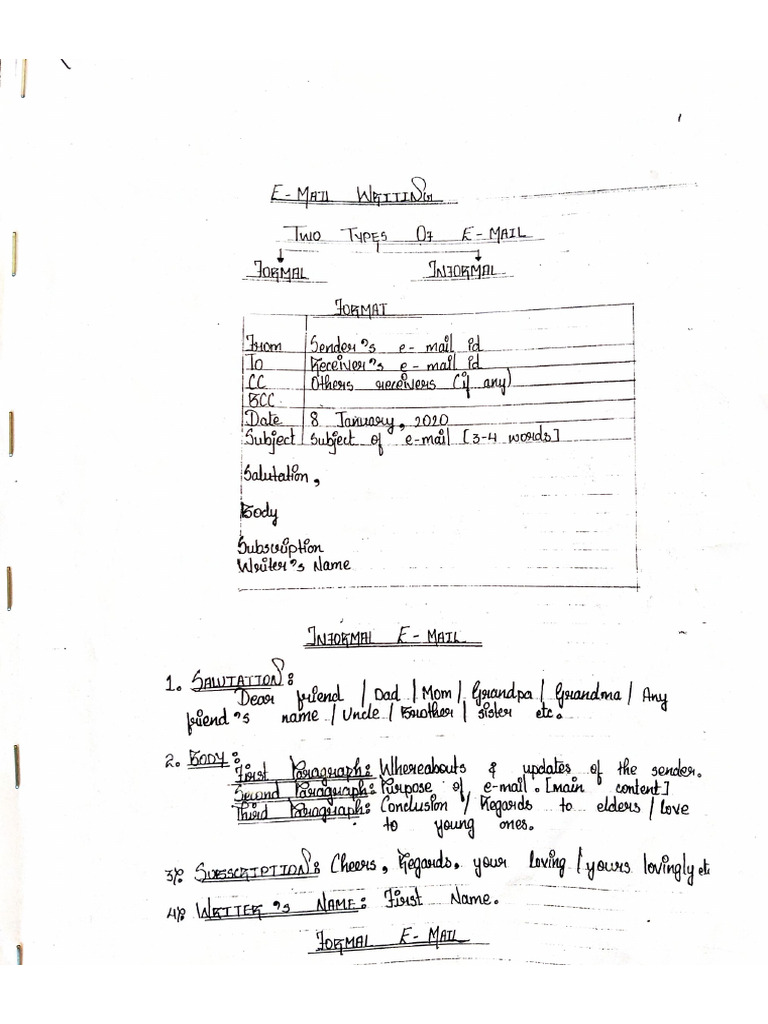 E-MAIL WRITING
TWO TYPES OF E-MAIL
FORMAL INFORMAL
FORMAT
From Sender's e-mail id
To Receiver's e-mail id
CC Others receivers (if any)
BCC
Date 8 January, 2020
Subject Subject of e-mail [3-4 words]
Salutation,
Body
Subscription
Writer's Name
INFORMAL E-MAIL
1. SALUTATION:
Dear friend / Dad / Mom / Grandpa / Grandma / Any
friend's name / Uncle / Brother / sister etc.
2. BODY:
First Paragraph: Whereabouts & updates of the sender.
Second Paragraph: Purpose of e-mail. [main content]
Third Paragraph: Conclusion / Regards to elders / Love
to young ones.
3. SUBSCRIPTION: Cheers, Regards, your loving / yours lovingly etc
4. WRITER'S NAME: First Name.
FORMAL E-MAIL